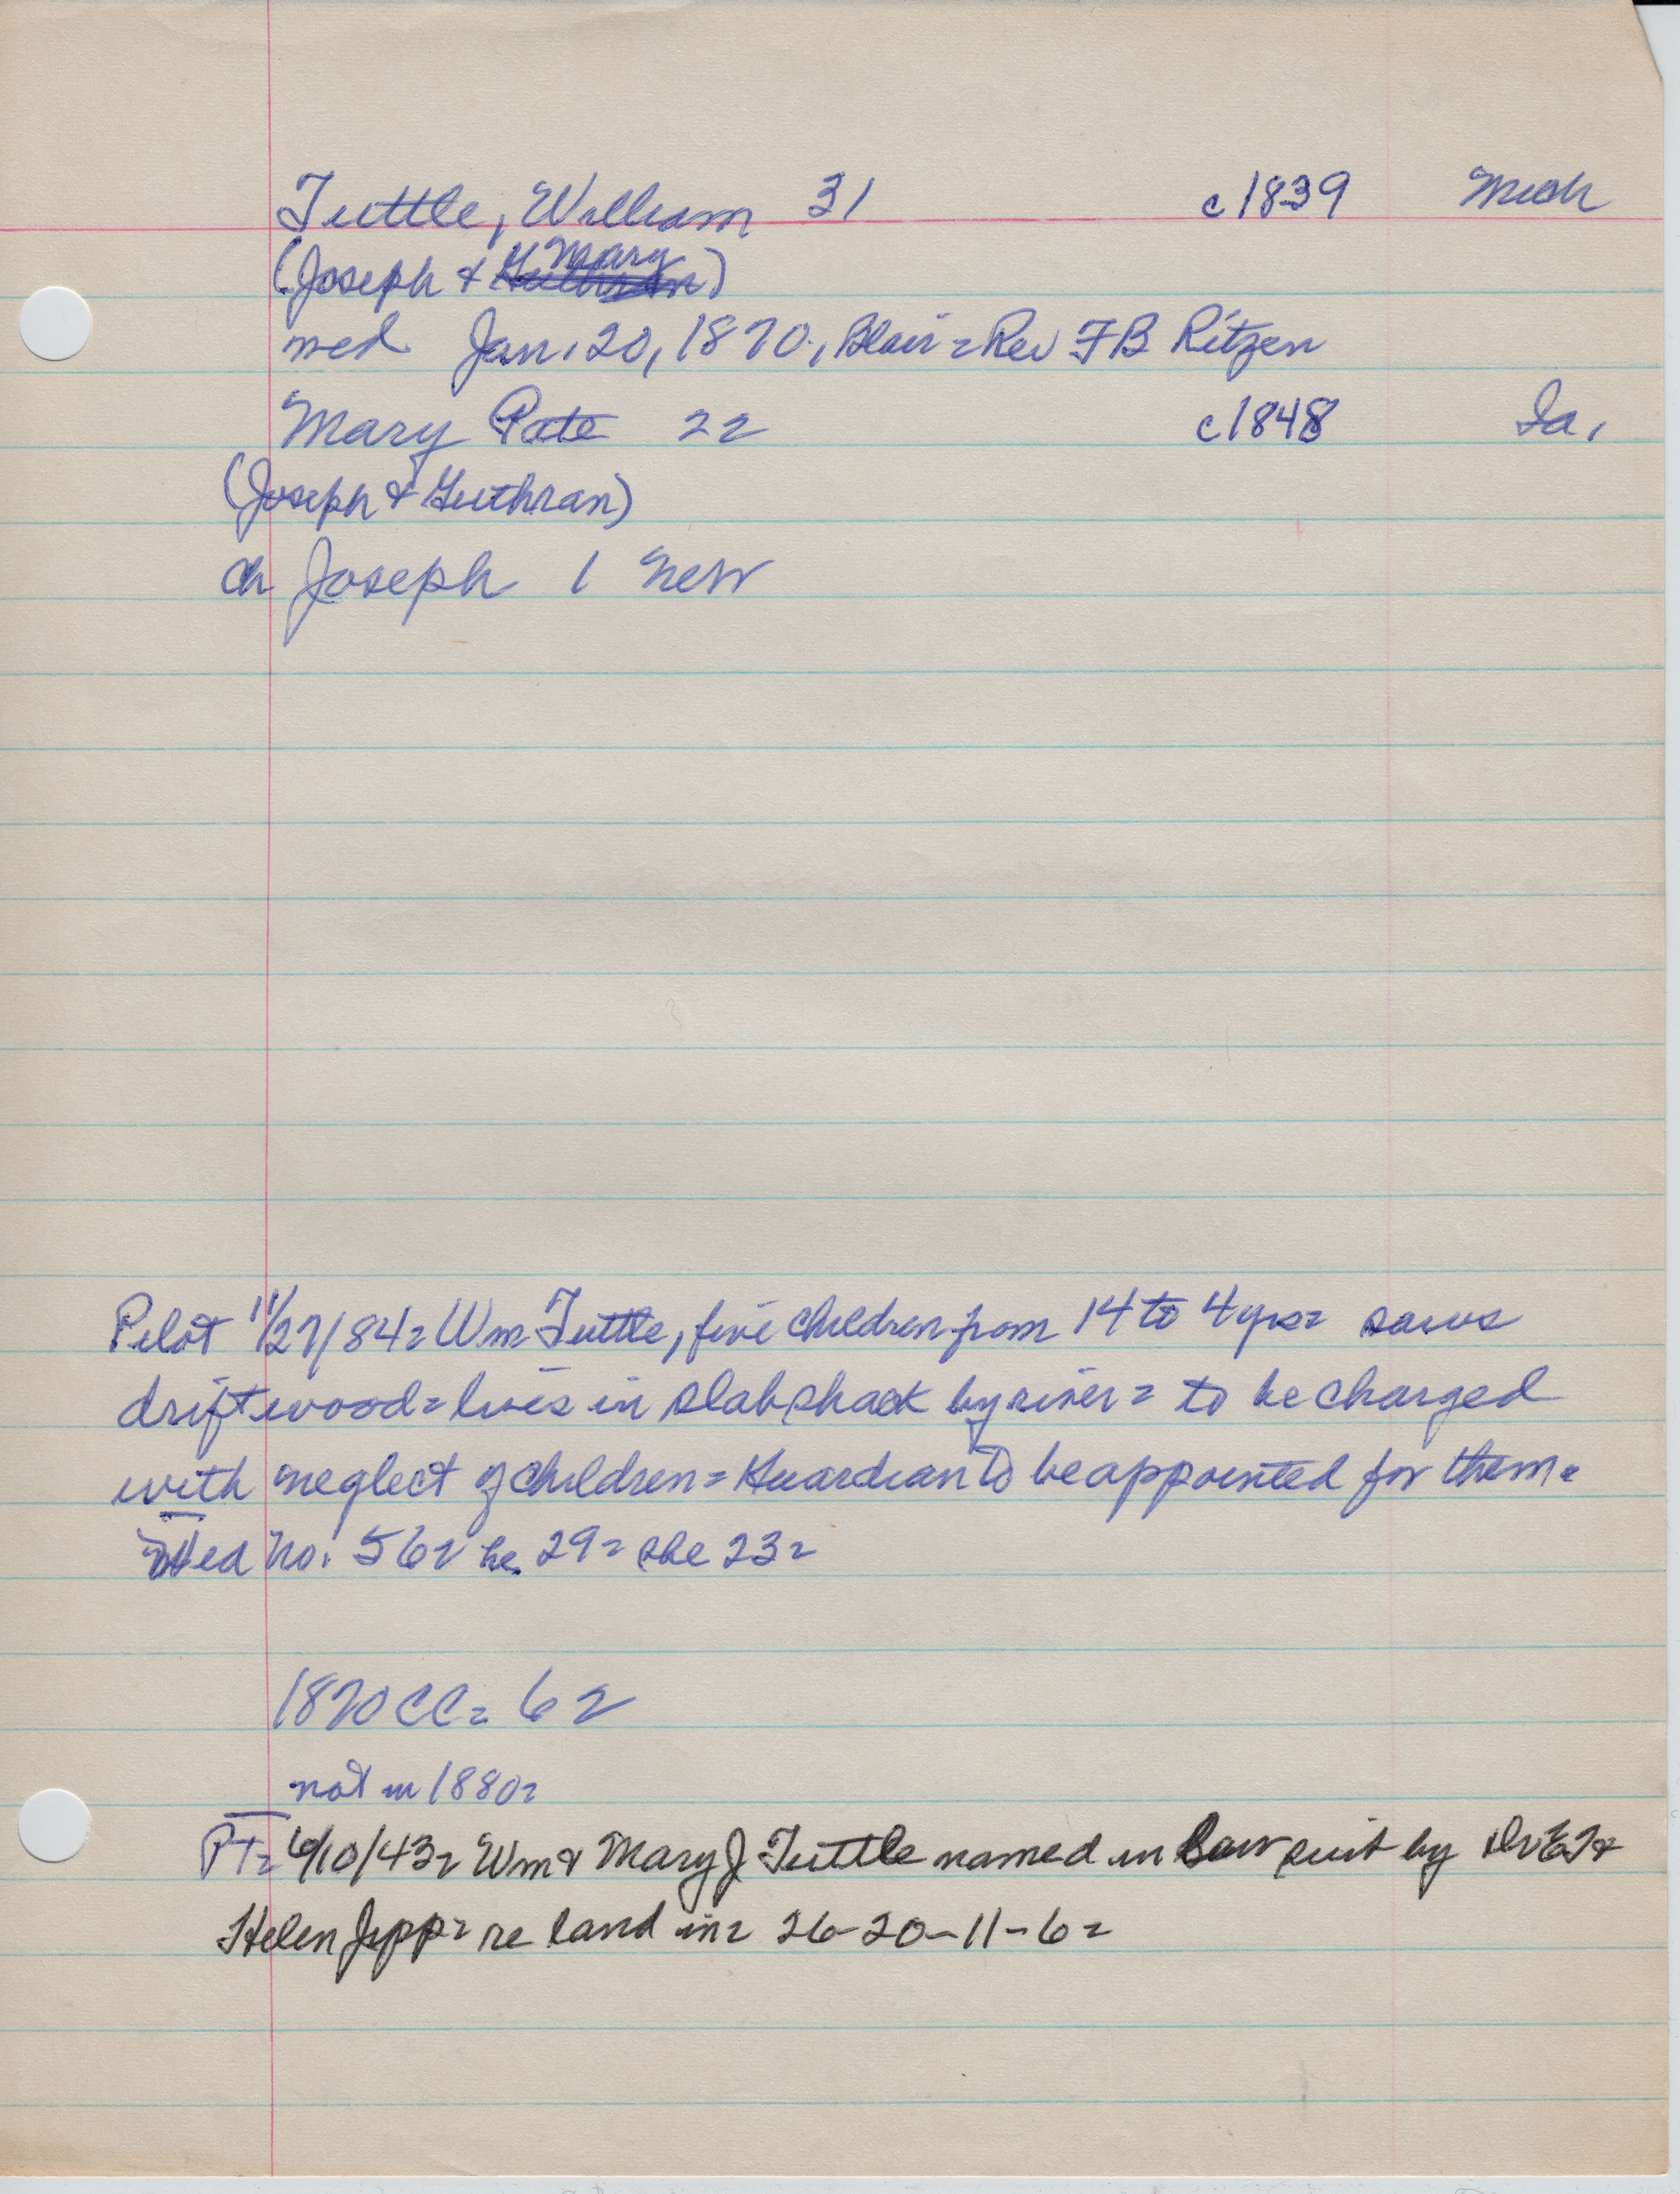 Tuttle, William 31 c1839 Mich
(Joseph & Mary)
med Jan. 20, 1870, Blair = Rev FB Ritzen
Mary Pate 22 c1848 Ia.
(Joseph & Guthran)
ch Joseph 1 Neb
Pilot 11/27/84 = Wm Tuttle, five children from 14 to 4 yrs = saws
driftwood = lives in slab shack by river = to be charged
with neglect of children = Guardian to be appointed for them =
No. 56 = he 29 = she 23 =
1870 CC = 62
not in 1880 =
PT = 6/10/43 = Wm & Mary J Tuttle named in law suit by &
Helen Jipp = re land in = 26-20-11-6 =